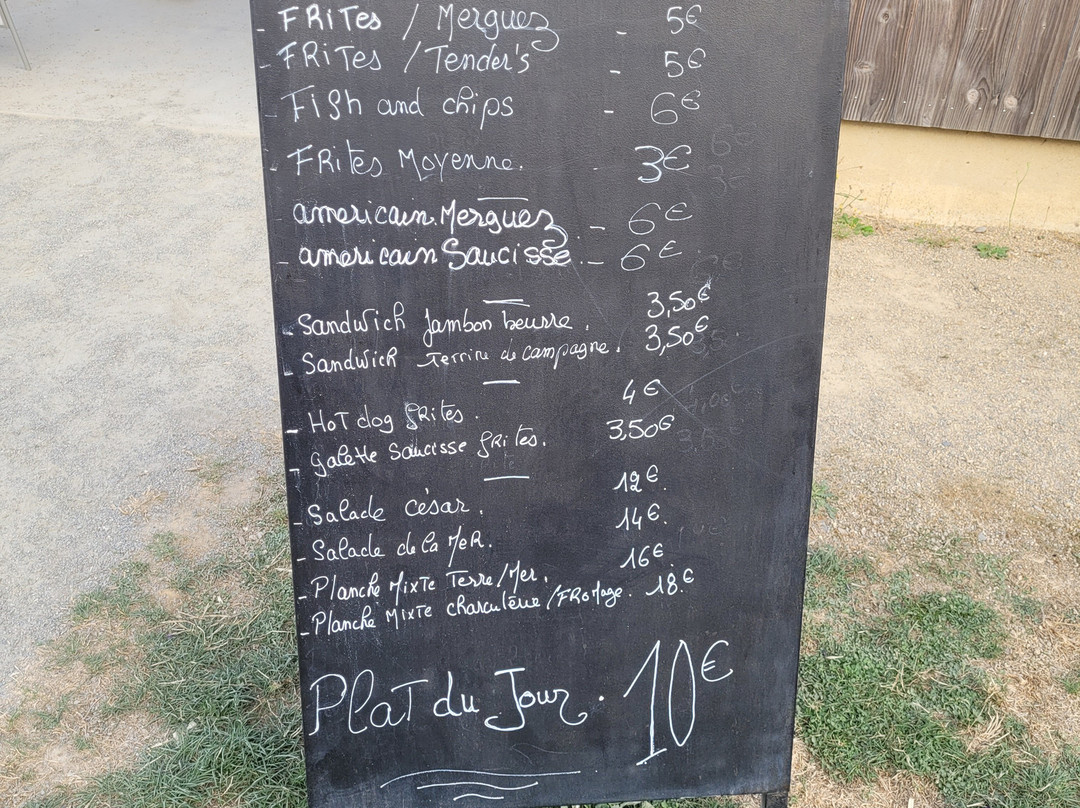 - FRiTes / Merguez - 5€
- FRiTes / Tender's - 5€
- Fish and chips - 6€
- FRites Moyenne. - 3€
americain Merguez - 6€
- americain Saucisse - 6€
- Sandwich Jambon beurre. 3,50€
- Sandwich Terrine de campagne. 3,50€
- HoT dog fRites. 4€
- galette Saucisse fRites. 3,50€
- Salade césar. 12€.
- Salade de la MeR. 14€.
- Planche MixTe Terre/Mer. 16€
- Planche MixTe charcuterie/FRomage. 18€
PlaT du Jour. 10€